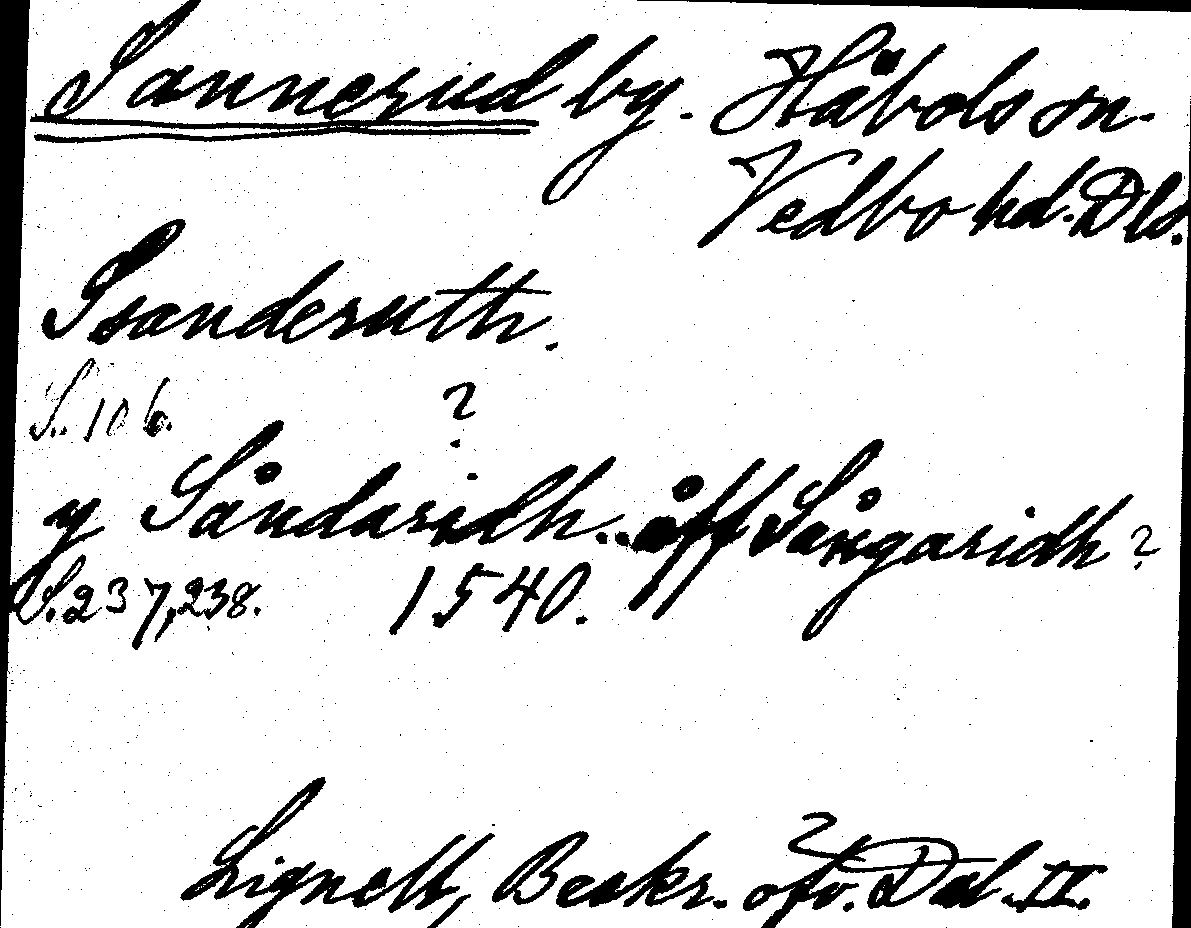 Sannerud by. Håbols sn.
Vedbo hd. Dls.
Ssanderuth.
S. 106.
?
y Såndaridh.. åff Sångaridh?
S. 237, 238. 1540.
Lignell, Beskr. öfv. Dal. II.